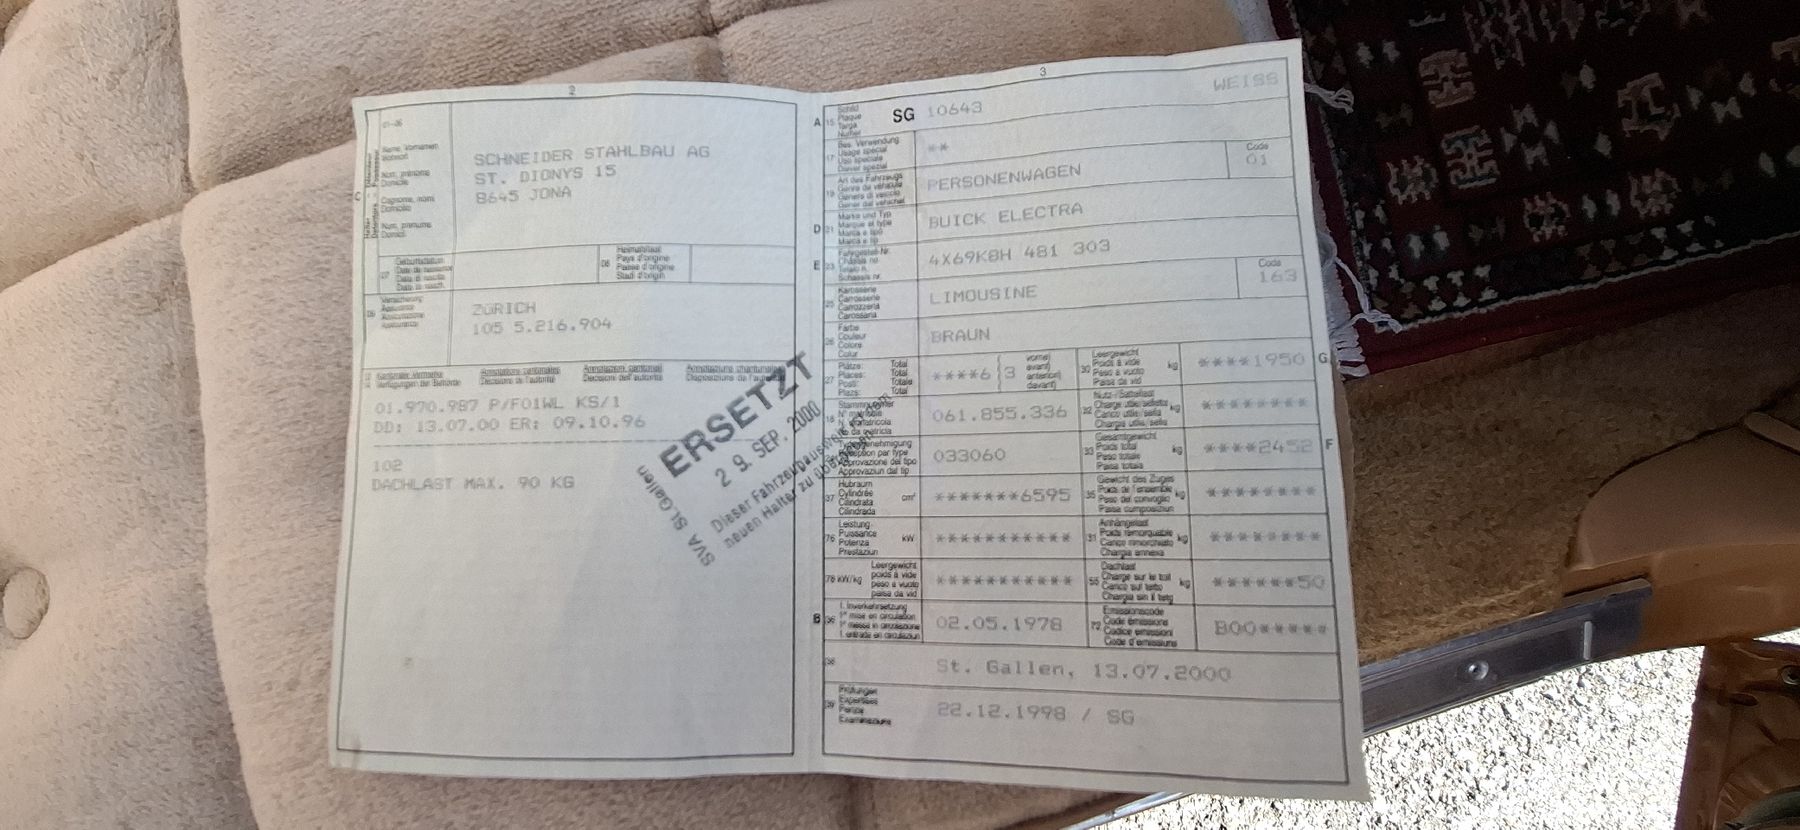 2
01-06
C
Name, Vornamen
Wohnort
Nom, prénoms
Domicile
Cognome, nomi
Domicilio
Num, prenums
Domicil
SCHNEIDER STAHLBAU AG
ST. DIONYS 15
8645 JONA
07
Geburtsdatum
08
Heimatstaat
Pays d'origine
Paese d'origine
Stadi d'origin
09
Versicherung
ZÜRICH
105 5.216.904
Kantonale Vermerke
Verfügungen der Behörde
Annotations cantonales
Décisions de l'autorité
Annotazioni cantonali
Decisioni dell'autorità
Annotaziuns chantunalas
01.970.987 P/F01WL KS/1
DD: 13.07.00 ER: 09.10.96
102
DACHLAST MAX. 90 KG
SVA St.Gallen
ERSETZT
29. SEP. 2000
Dieser Fahrzeugausweis ist dem
neuen Halter zu übergeben
3
A
15
Schild
Plaque
Targa
Numer
SG 10643
WEISS
17
Bes. Verwendung
Usage spécial
Uso speciale
Diever spezial
**
19
Art des Fahrzeugs
Genre de véhicule
Genere di veicolo
Gener dal vehichel
PERSONENWAGEN
Code
01
D
21
Marke und Typ
Marque et type
Marca e tipo
Marca e tip
BUICK ELECTRA
E
23
Fahrgestell-Nr.
Châssis no
Telaio n.
Schassis nr.
4X69K8H 481 303
25
Karosserie
Carrosserie
Carrozzeria
Carossaria
LIMOUSINE
Code
163
26
Farbe
Couleur
Colore
Colur
BRAUN
27
Plätze: Total
Places: Total
Posti: Totale
Plazs: Total
****6
3
vorne
avant
anteriori
davant
30
Leergewicht
Poids à vide
Peso a vuoto
Paisa da vid
kg
****1950
G
18
Stammnummer
N° matricule
N. matricola
061.855.336
32
Nutz-/Sattellast
kg
*******
Typengenehmigung
Réception par type
Approvazione del tipo
Approvaziun dal tip
033060
33
Gesamtgewicht
Poids total
Peso totale
Paisa totala
kg
****2452
F
37
Hubraum
Cylindrée
Cilindrata
Cilindrada
cm³
*******6595
35
Gewicht des Zuges
Poids de l'ensemble
Peso del convoglio
Paisa cumposiziun
kg
*******
76
Leistung
Puissance
Potenza
Prestaziun
kW
***********
31
Anhängelast
Poids remorquable
Carico rimorchiato
Chargia annexa
kg
*******
78 kW/kg
Leergewicht
poids à vide
peso a vuoto
paisa da vid
***********
55
Dachlast
Charge sur le toit
Carico sul tetto
Chargia sin il tetg
kg
******50
B
36
1. Inverkehrsetzung
1re mise en circulation
1a messa in circolazione
1. entrada en circulaziun
02.05.1978
72
Emissionscode
Code émissions
Codice emissioni
Code d'emissiuns
B00*****
38
St. Gallen, 13.07.2000
39
Prüfungen
Expertises
Perizie
Examinaziuns
22.12.1998 / SG